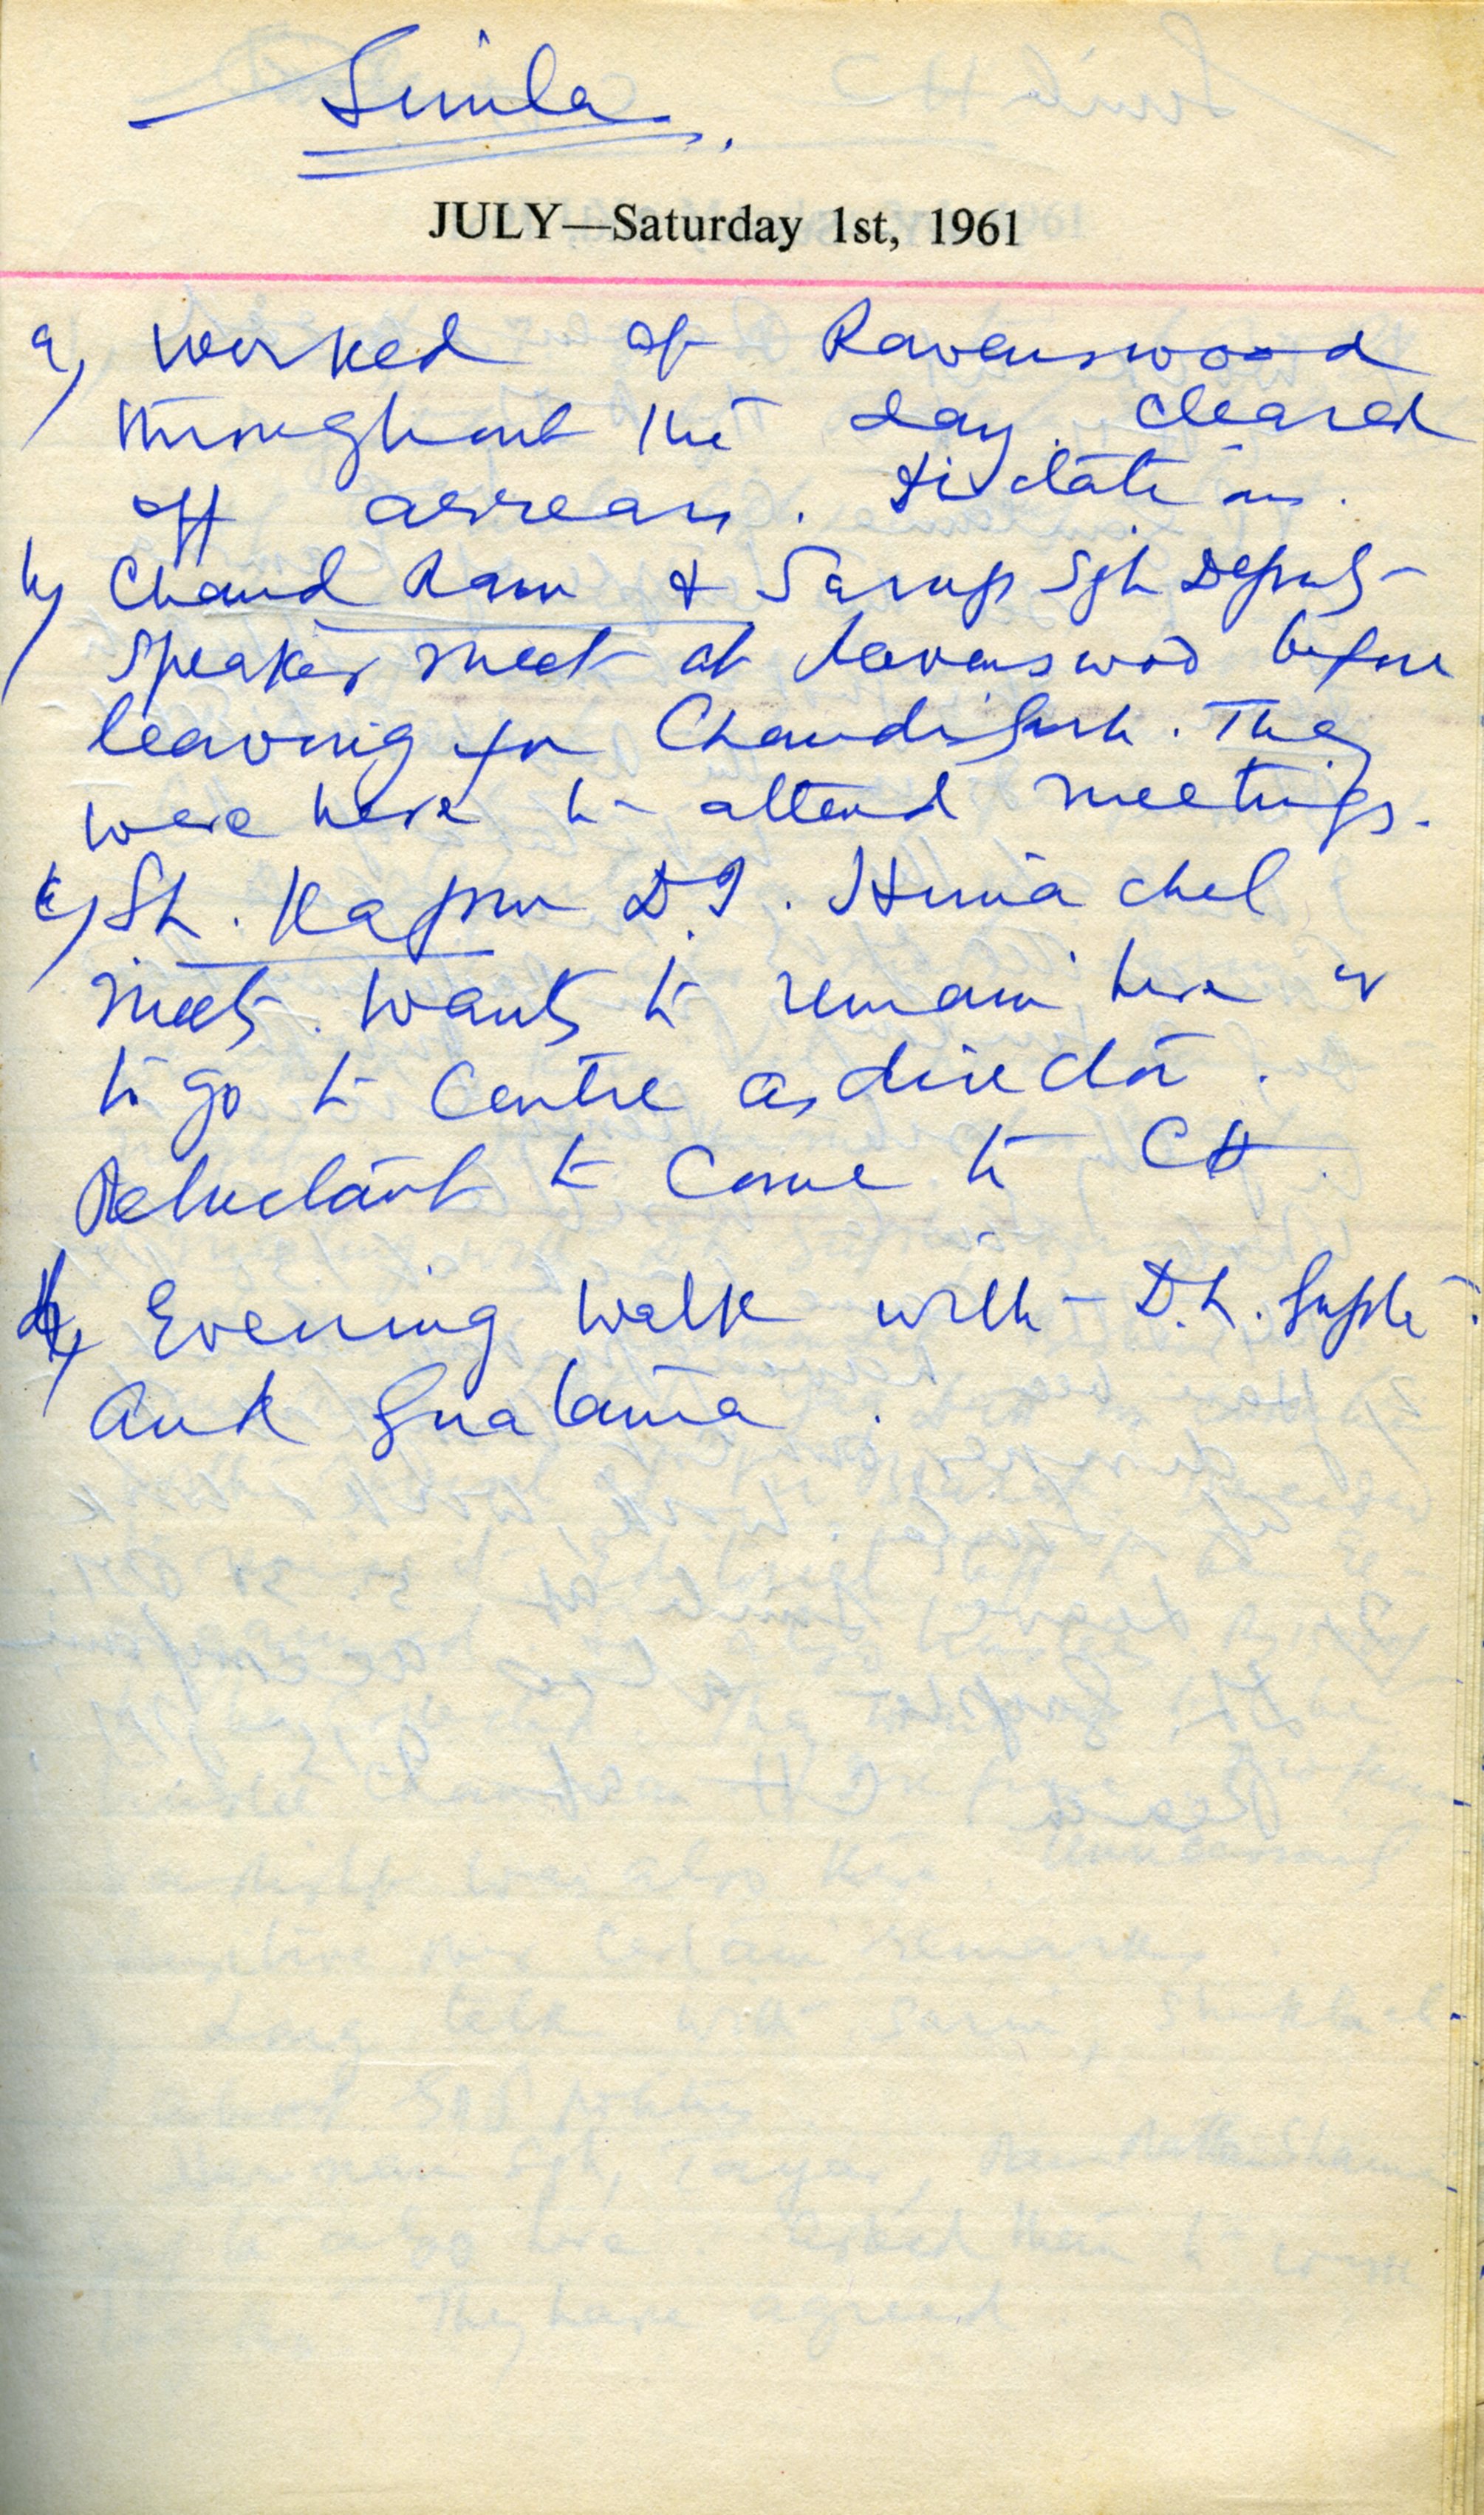 Simla.
JULY—Saturday 1st, 1961
a) Worked at Ravenswood
throughout the day. Cleared
off arrears. Dictations.
b) Chand Ram & Sarup Sgh Deputy
Speaker meet at Ravenswood before
leaving for Chandigarh. They
were here to attend meetings.
c) Sh. Kapur D.I. Himachel
meets. Wants to remain here or
to go to Centre as director.
Reluctant to come to CH.
d) Evening walk with D.L. Gupta
and